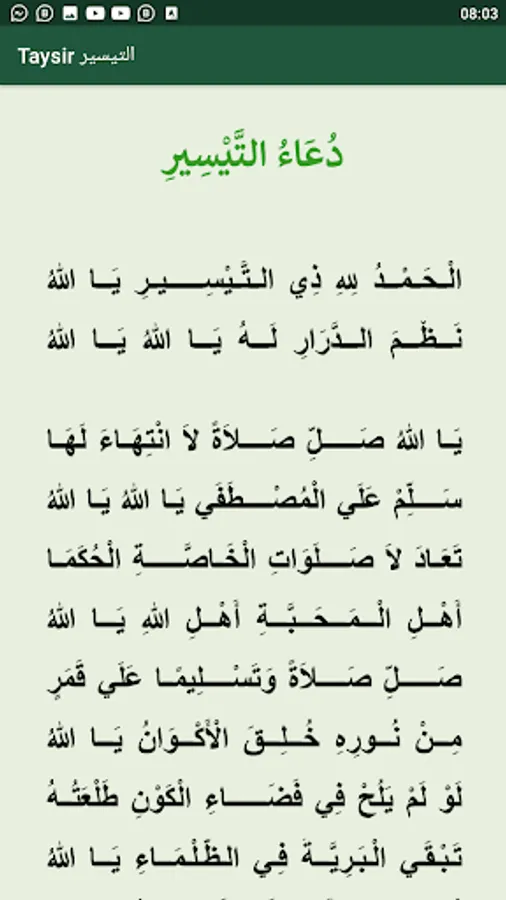 08:03
Taysir التيسير
دُعَاءُ التَّيْسِيرِ
الْحَمْدُ لِلهِ ذِي التَّيْسِيرِ يَا اللهُ
نَظْمَ الدَّرَارِ لَهُ يَا اللهُ يَا اللهُ
يَا اللهُ صَلِّ صَلاَةً لاَ انْتِهَاءَ لَهَا
سَلِّمْ عَلَي الْمُصْطَفَي يَا اللهُ يَا اللهُ
تَعَادَ لاَ صَلَوَاتِ الْخَاصَّةِ الْحُكَمَا
أَهْلِ الْمَحَبَّةِ أَهْلِ اللهِ يَا اللهُ
صَلِّ صَلاَةً وَتَسْلِيمًا عَلَي قَمَرٍ
مِنْ نُورِهِ خُلِقَ الْأَكْوَانُ يَا اللهُ
لَوْ لَمْ يَلُحْ فِي فَضَاءِ الْكَوْنِ طَلْعَتُهُ
تَبْقَي الْبَرِيَّةَ فِي الظَّلْمَاءِ يَا اللهُ